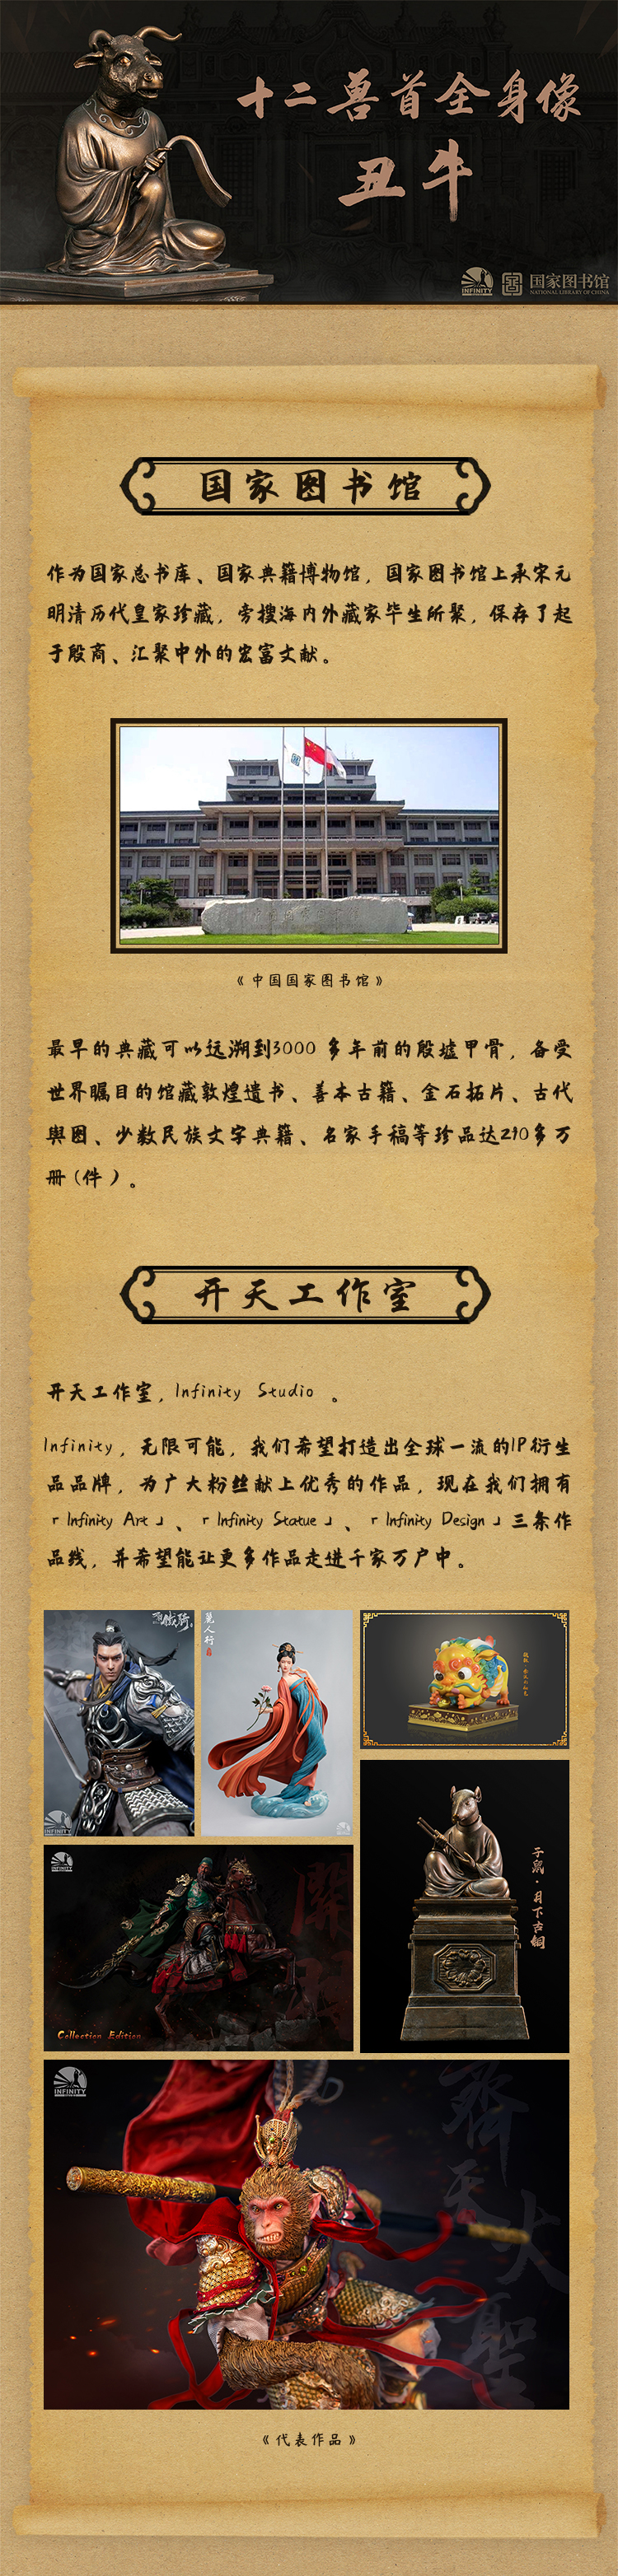 十二兽首全身像
丑牛
INFINITY
国家图书馆
NATIONAL LIBRARY OF CHINA
国家图书馆
作为国家总书库、国家典籍博物馆，国家图书馆上承宋元
明清历代皇家珍藏，旁搜海内外藏家毕生所聚，保存了起
于殷商、汇聚中外的宏富文献。
《中国国家图书馆》
最早的典藏可以远溯到3000 多年前的殷墟甲骨，备受
世界瞩目的馆藏敦煌遗书、善本古籍、金石拓片、古代
舆图、少数民族文字典籍、名家手稿等珍品达290多万
册（件）。
开天工作室
开天工作室，Infinity Studio 。
Infinity，无限可能，我们希望打造出全球一流的IP衍生
品品牌，为广大粉丝献上优秀的作品，现在我们拥有
「Infinity Art」、「Infinity Statue」、「Infinity Design」三条作
品线，并希望能让更多作品走进千家万户中。
INFINITY
麗人行
子鼠·月下古铜
INFINITY
關羽
Collection Edition
INFINITY
齊天大聖
《代表作品》